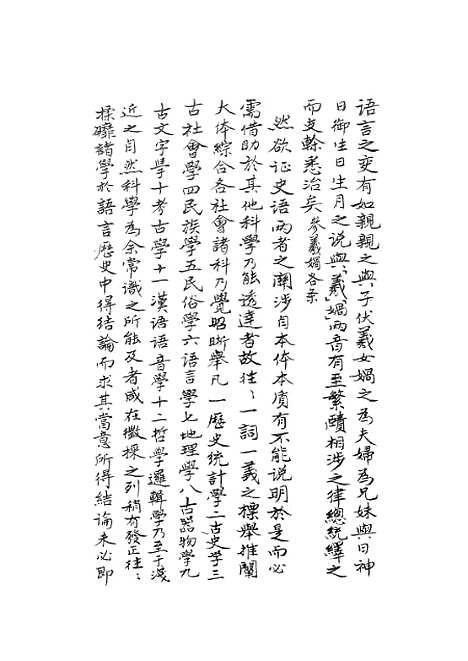 語言之变有如親親之與子伏羲女媧之為夫婦為兄妹與日神
日御生日生月之说與羲媧两音有至繁賾相涉之律總統繹之
而支幹悉治矣參羲媧各条
然欲证史语两者之関涉自本体本质有不能说明於是而必
需借助於其他科學乃能透達者故往:一詞一義之標舉推闡
大体綜合各社會諸科乃覺昭晰舉凡一歷史統計學二古史学三
古社會學四民族學五民俗學六语言學七地理學八古器物學九
古文字學十考古學十一漢语語音學十二哲學邏輯學乃至于淺
近之自然科學為余常識之所能及者咸在徵採之列稍有發正往:
揉雜諸學於語言歷史中得结論而求其當意所得結論未必即